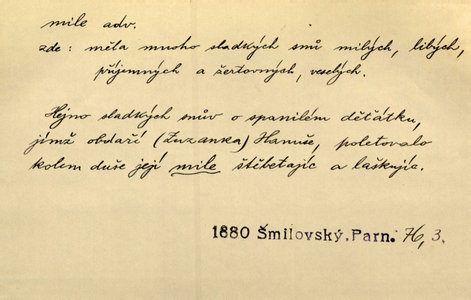 mile adv.
zde : měla mnoho sladkých snů milých, libých,
příjemných a žertovných, veselých.
Hejno sladkých snův o spanilém děťátku,
jímž obdaří (Zuzanka) Hanuše, poletovalo
kolem duše její mile štěbetajíc a laškujíc.
1880 Šmilovský, Parn. 76, 3.